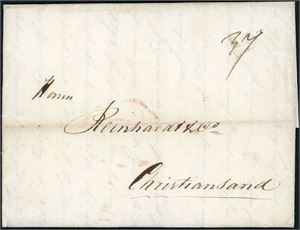 37
Herrn
Reinhardt & Co
Christiansand